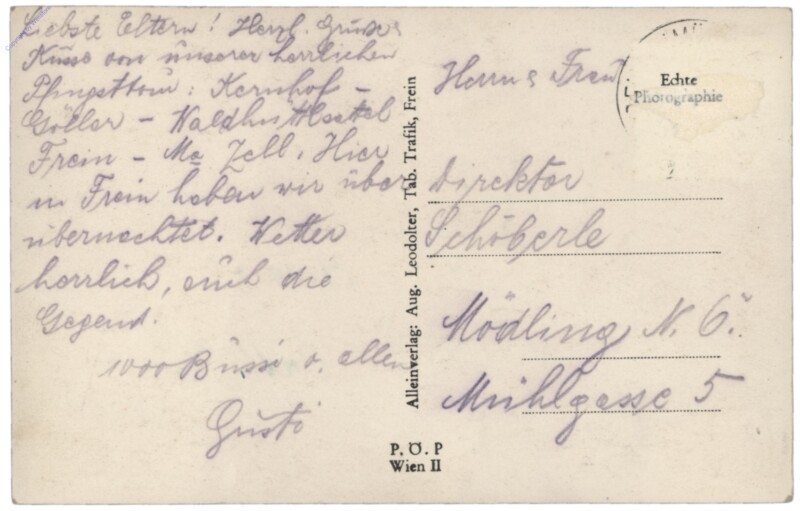 Liebste Eltern! Herzl. Grüße &
Küsse von unserer herrlichen
Pfingsttour: Kernhof –
Göller – Waldhüttsattel
Frein – Ma Zell. Hier
in Frein haben wir über
übernachtet. Wetter
herrlich, auch die
Gegend.
1000 Bussi v. allen
Gusti
Alleinverlag: Aug. Leodolter, Tab. Trafik, Frein
P. Ö. P
Wien II
Echte
Photographie
Herrn & Frau
Direktor
Schöberle
Mödling N. Ö.
Mühlgasse 5